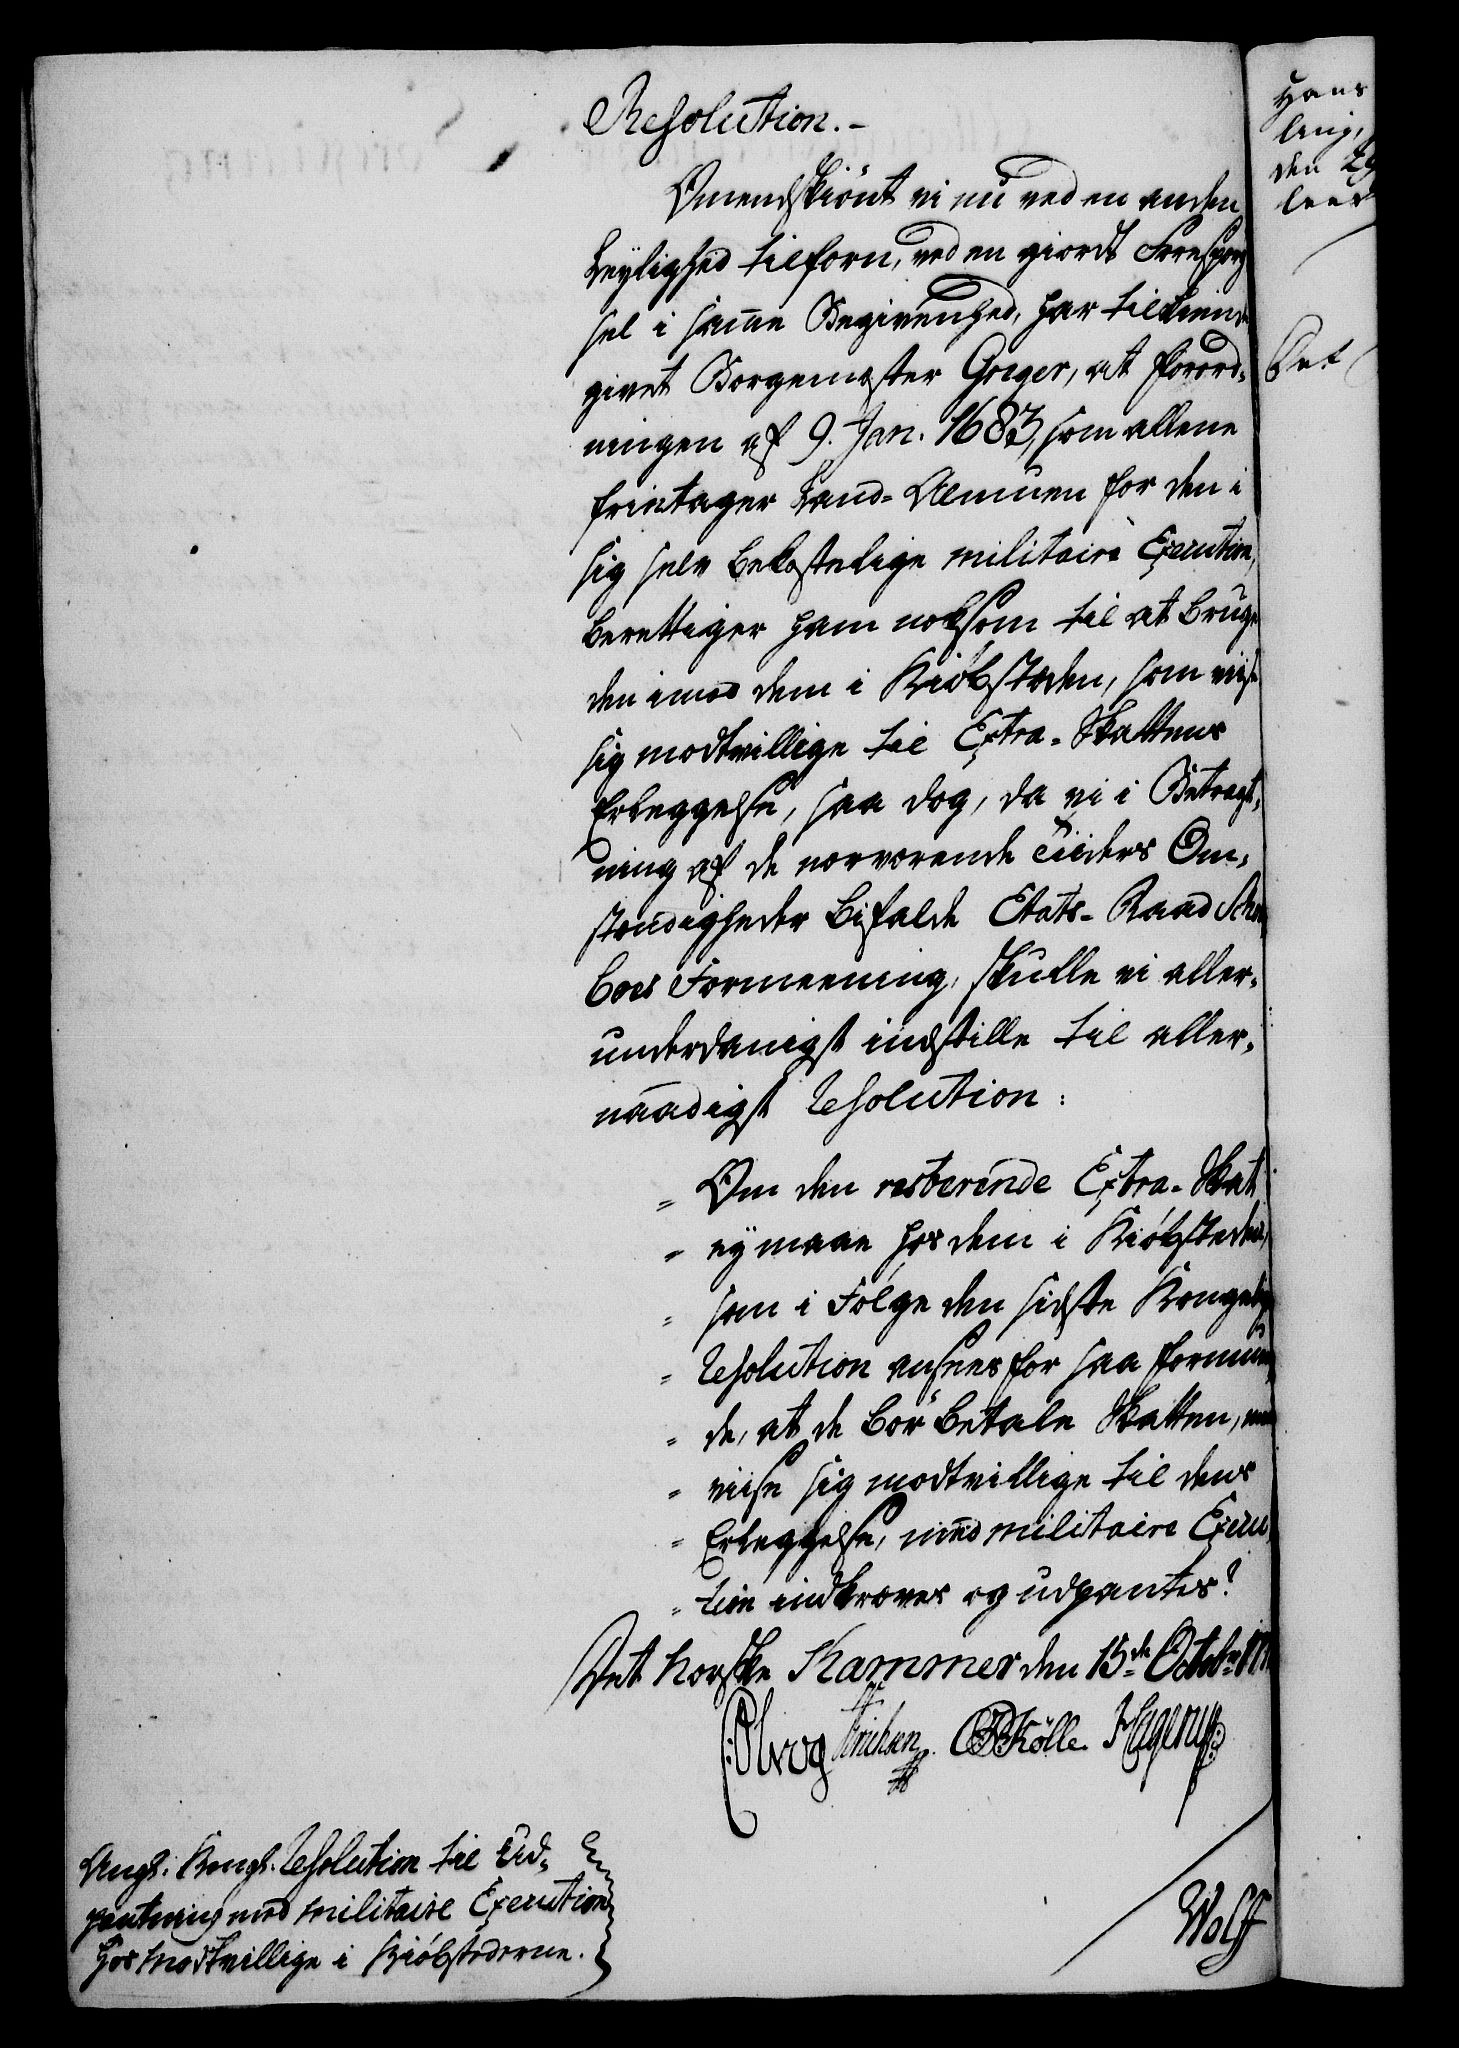 Resolution.-
Omendskiönt vi nu ved en anden
Leylighed tilforn, ved en giordt Forespørg
sel i samme Begivenhed, har tilkiende
givet Borgemester Greger, at Forord-
ningen af 9. Jan. 1683, som allene
fritager Land-Almuen for den i
sig selv bekostelige militaire Execution,
berettiger ham noksom til at bruge
den imod dem i Kiöbstæden, som viise
sig modtvillige til Extra-Skattens
Erleggelse, saa dog, da vi i Betragt-
ning af de nærværende Tiiders Om-
stændigheder bifalde Etats-Raad
Formeening, skulle vi aller-
underdanigst indstille til aller-
naadigst Resolution:
= Om den resterende Extra-Skat
= ey maae hos dem i Kiöbstæden,
= som i Fölge den sidste Kongelig
= Resolution ansees for saa formuen-
= de, at de bör betale Skatten, men
= viise sig modtvillige til dens
= Erleggelse, med militaire Execu
= tion indkræves og udpantes?
Det Norske Kammer den 15de Octobr
Erichsen. Kölle. Hagerup
Wolff
Angl. Kongl. Resolution til Ud-
pantning med militaire Execution
hos modtvillige i Kiöbstæderne.
Hans
den 29
Det